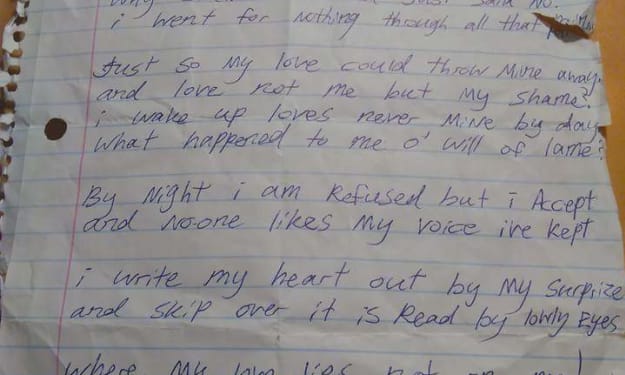 said No.
i went for nothing through all that
Just so My love could throw Mine away.
and love not me but My shame?
i wake up loves never MiNe by day
what happened to me o' will of lame?
By Night i am Refused but i Accept
and No-one likes My voice i've kept
i write my heart out by My Surprize
and skip over it is Read by lowly Eyes
where My